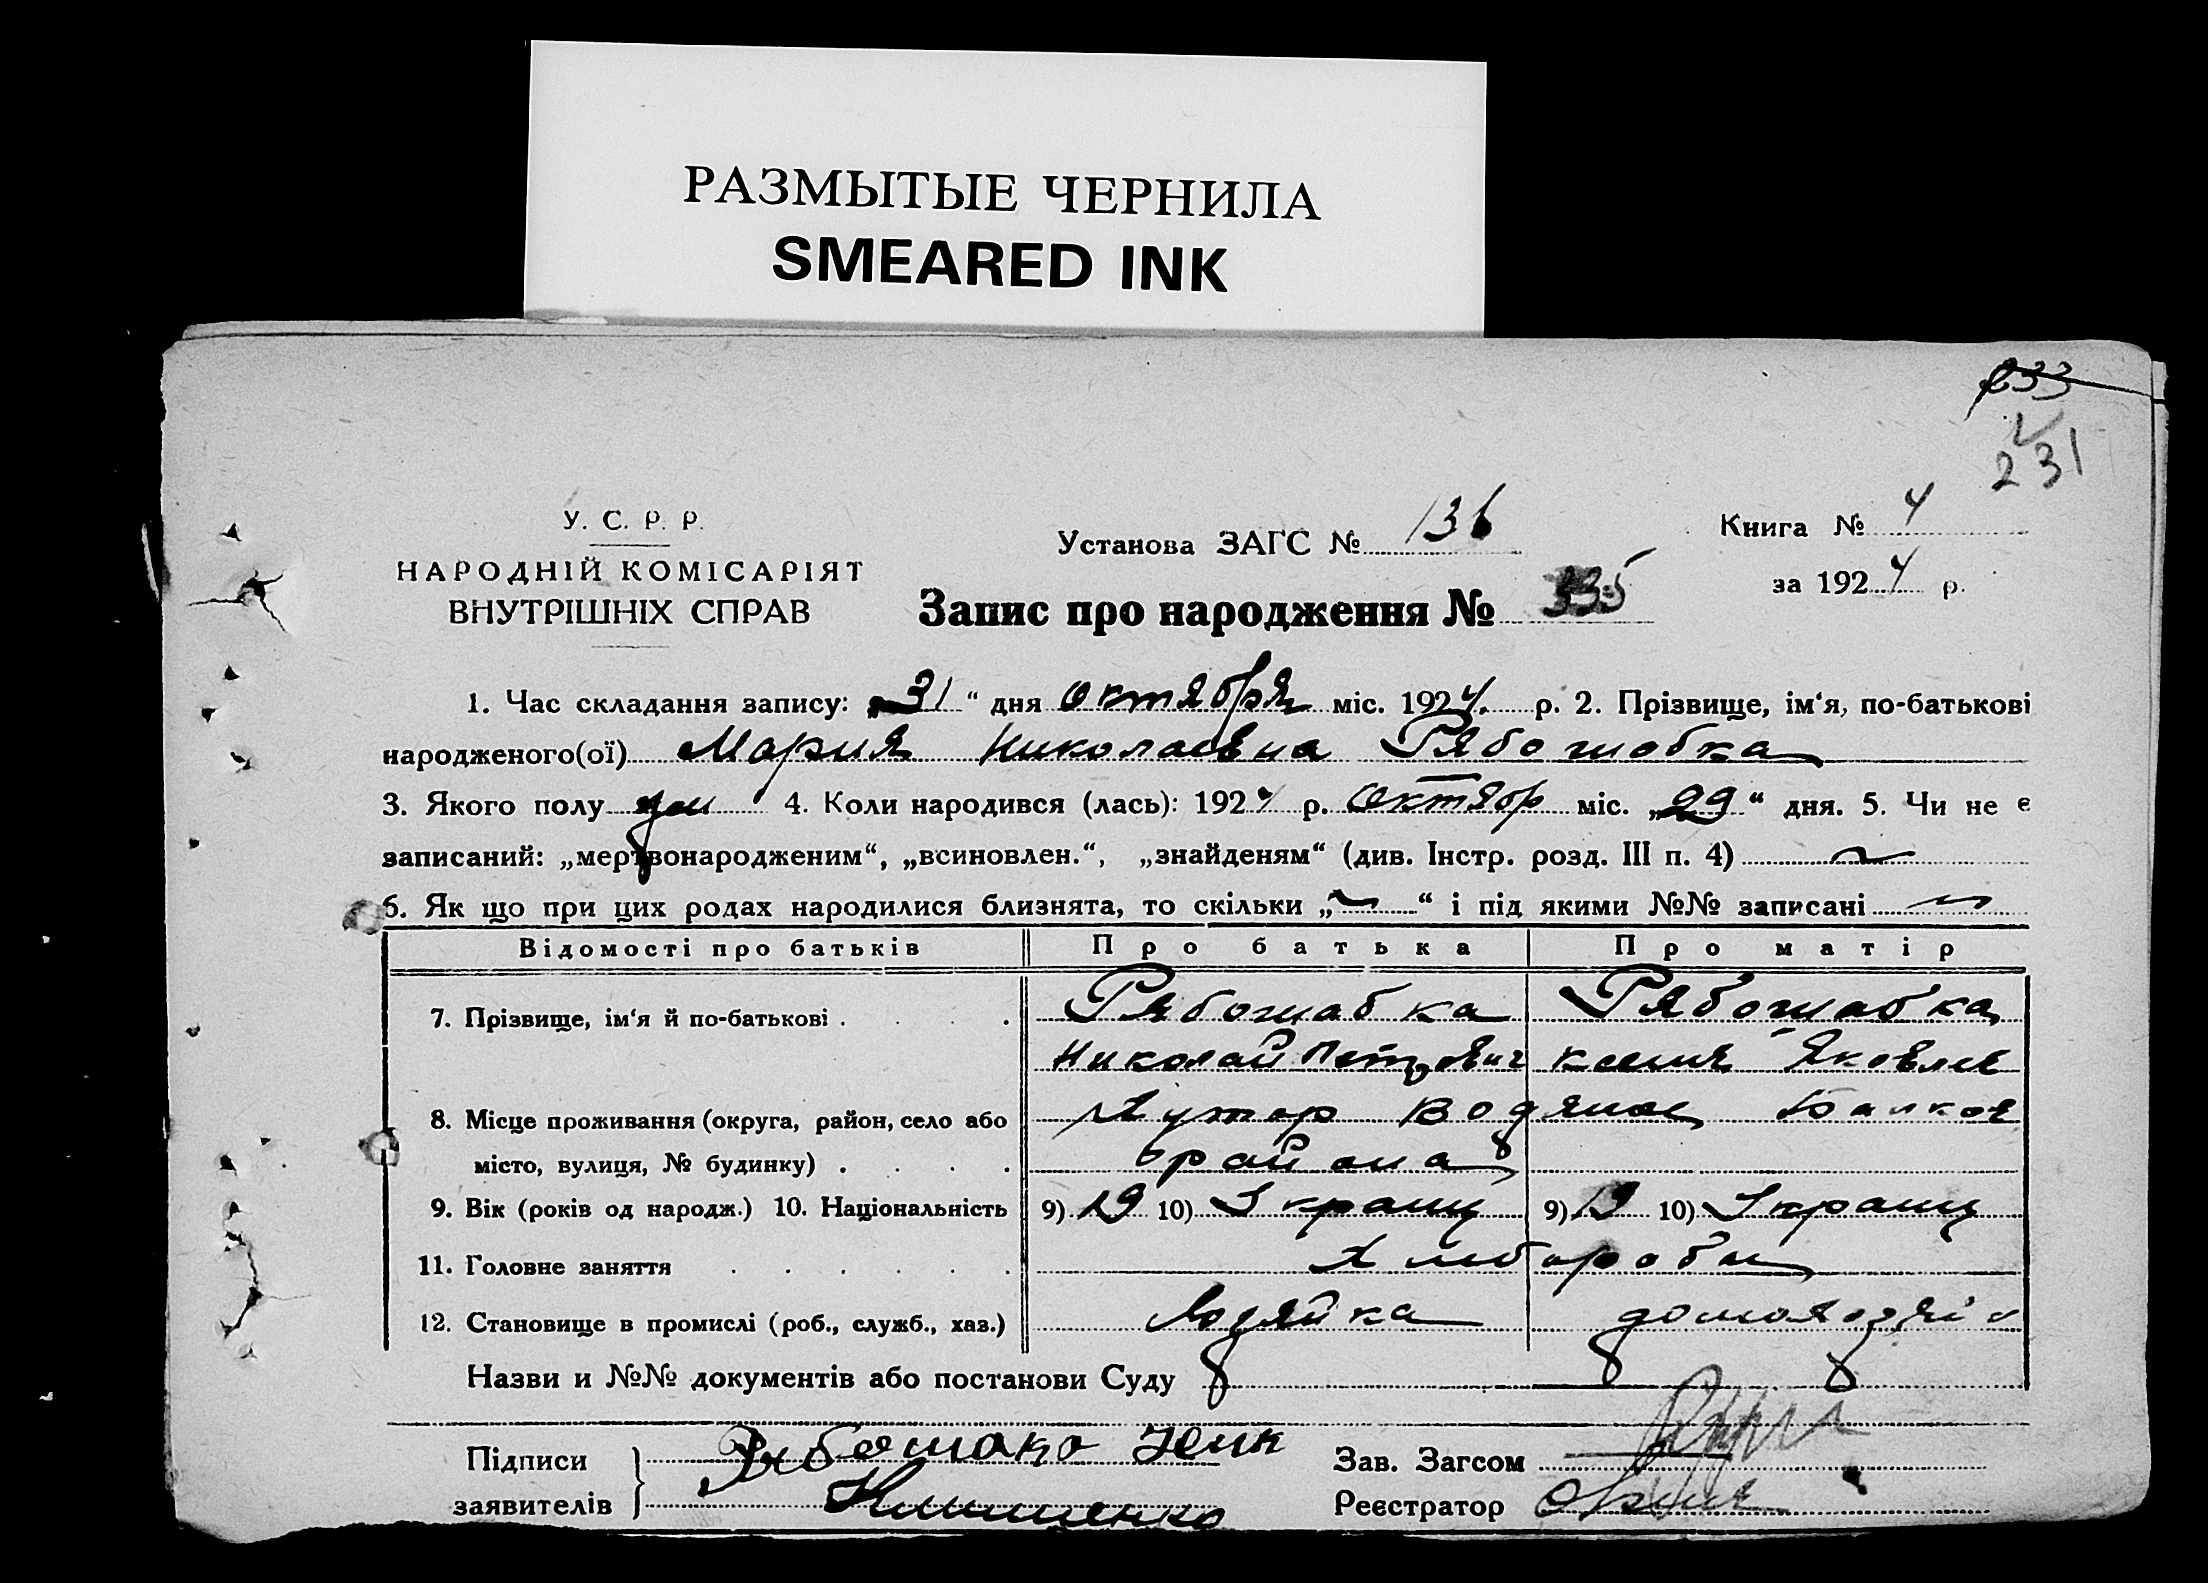 РАЗМЫТЫЕ ЧЕРНИЛА
SMEARED INK
233
231
У. С. Р. Р.
НАРОДНІЙ КОМІСАРІЯТ
ВНУТРІШНІХ СПРАВ
Установа ЗАГС № 136
Книга № 4
за 1924 р.
Запис про народження № 335
1. Час складання запису: „31“ дня октября міс. 1924. р. 2. Прізвище, ім‘я, по-батькові
народженого(ої) Мария Николаевна Рябошабка
3. Якого полу 4. Коли народився (лась): 1924 р. Октябр міс. „29“ дня. 5. Чи не є
записаний: „мертвонародженим“, „всиновлен.“, „знайденям“ (див. Інстр. розд. III п. 4)
6. Як що при цих родах народилися близнята, то скільки „ “ і під якими №№ записані
Відомості про батьків Про батька Про матір
7. Прізвище, ім‘я й по-батькові . . . . Рябошабка Рябошабка
Николай Петрович Ксения Яковлев
8. Місце проживання (округа, район, село або Хутор Водяное
місто, вулиця, № будинку) . . . . района
9. Вік (років од народж.) 10. Національність 9) 19 10) Украинц 9) 19 10) Украинц
11. Головне заняття . . . . . . Хлибороби
12. Становище в промислі (роб., служб., хаз.)
Назви и №№ документів або постанови Суду
Підписи
заявителів
Зав. Загсом
Реєстратор